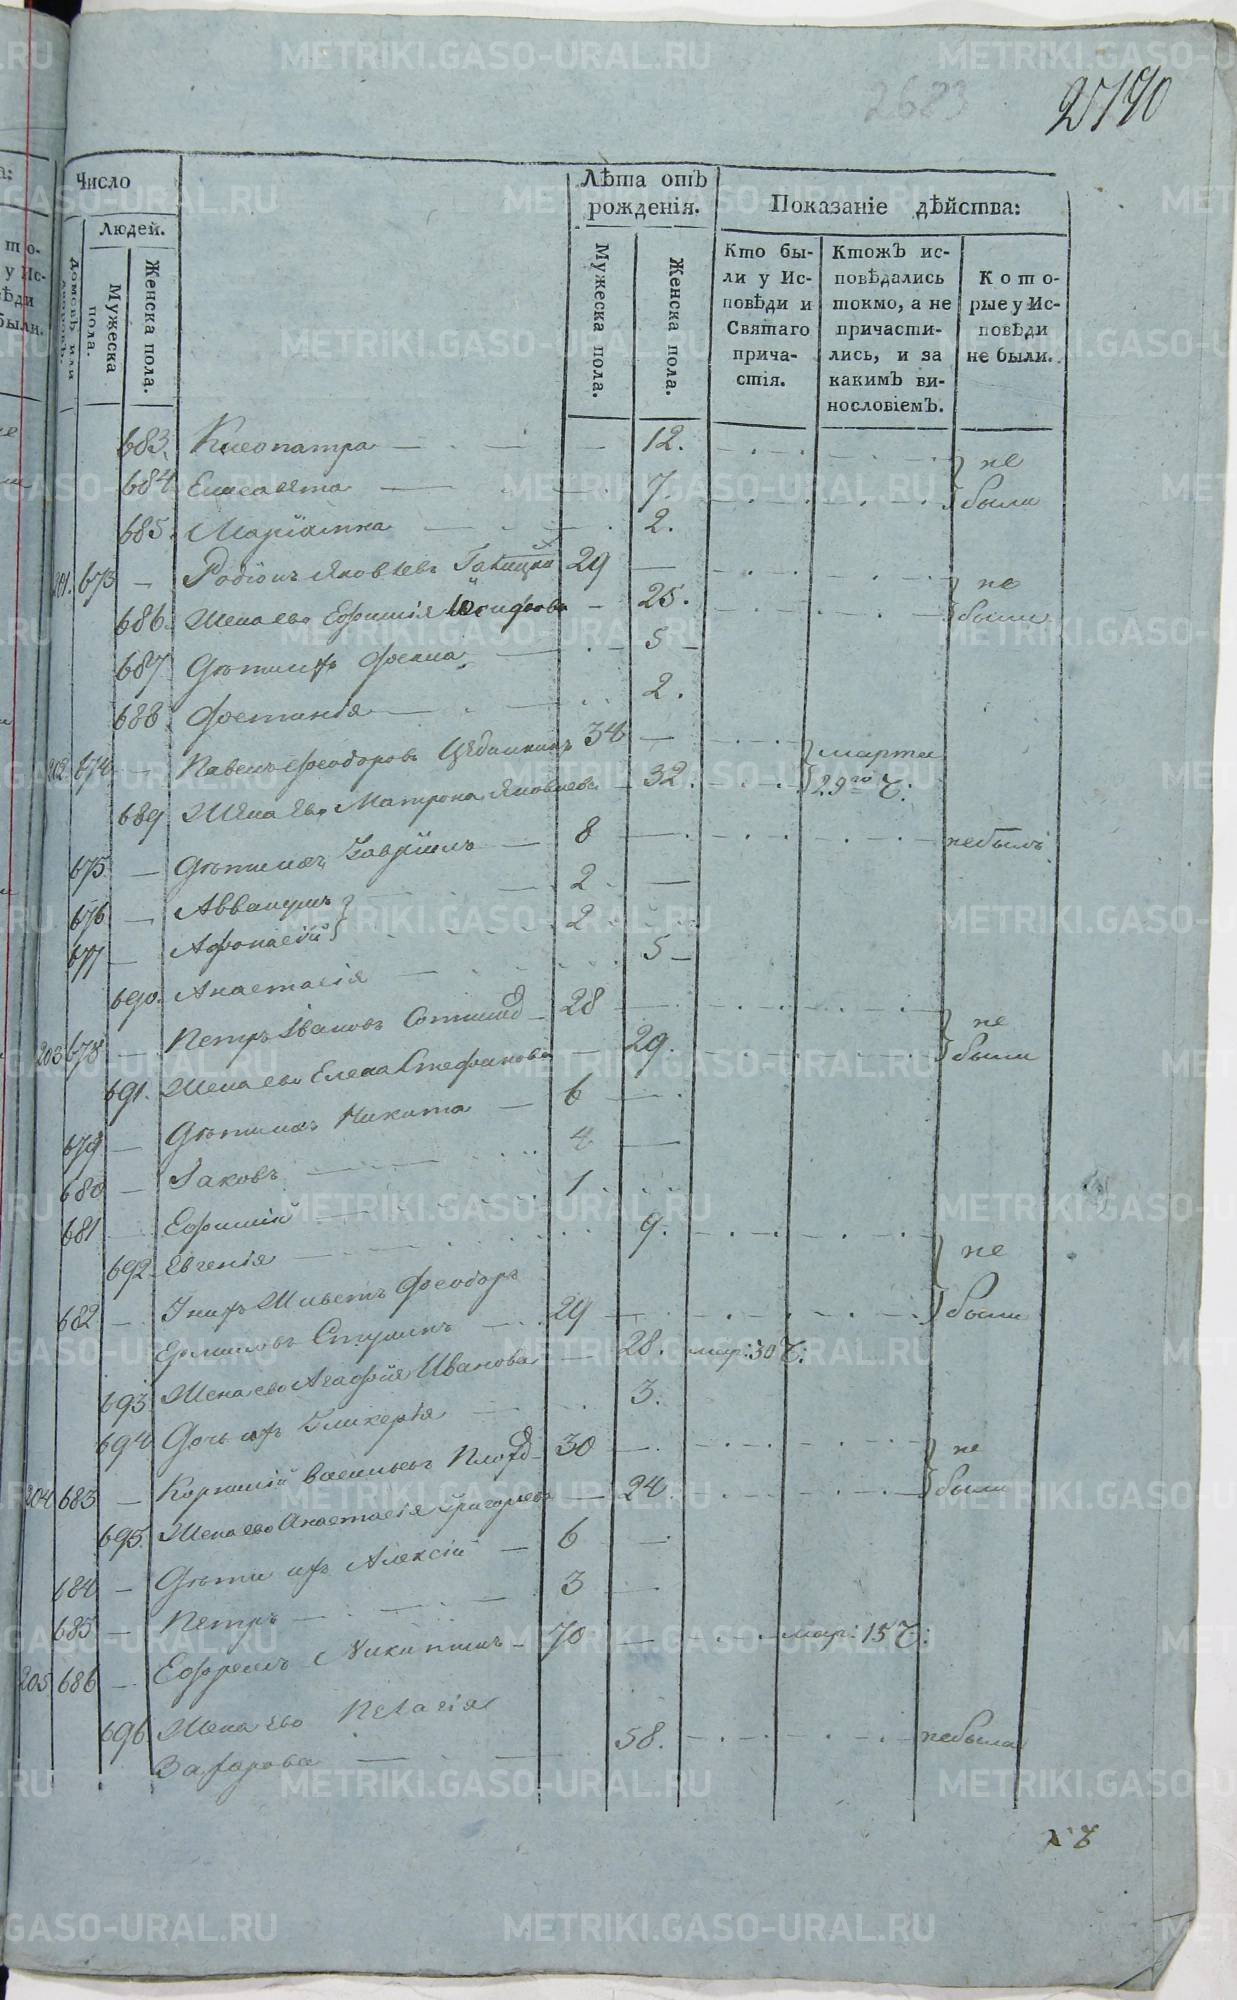 2683
25190
Число
Лѣта отъ рожденія.
Показаніе дѣйства:
Людей.
Домовъ или
Мужеска пола.
Женска пола.
Мужеска пола.
Женска пола.
Кто были у Исповѣди и Святаго причастія.
Ктожъ исповѣдались токмо, а не причастились, и за какимъ винословіемъ.
Которые у Исповѣди не были.
683. Клеопатра 12. не
684 Елисавета 7. были
685. Маріамна 2.
201. 673 Родіонъ Яковлевъ 29 не
686. Жена ево Ефимія 25. были
687 Дѣти ихъ Фекла 5
688 Фостинія 2.
202 674 Павелъ Феодоровъ 34 марта
689 Жена Ево Матрона Яковлева 32. 29го ч:
675 Дѣти ихъ Гавріилъ 8 небылъ
676 Аввакумъ 2
677 Афонасій 2
690. Анастасія 5
203 678 Петръ Івановъ 28 не
691. Жена ево Елена Стефанова 29. были
679 Дѣти ихъ Никита 6
680 Іаковъ 4
681 Ефимій 1
692 Евгенія 9. не
682 У нихъ Живетъ Феодоръ
29 были
693 Жена ево Агафія Иванова 28. мар: 30 ч:
694 Дочь ихъ Гликерія 3.
204 683 Корнилій Васильевъ 30 не
695. Жена ево Анастасія Григорьева 24 были
684 Дѣти ихъ Алексій 6
685 Петръ 3
205 686 Ефремъ Никитинъ 70 мар: 15 ч:
696 Жена Ево Пелагія
Захарова 58. небыла